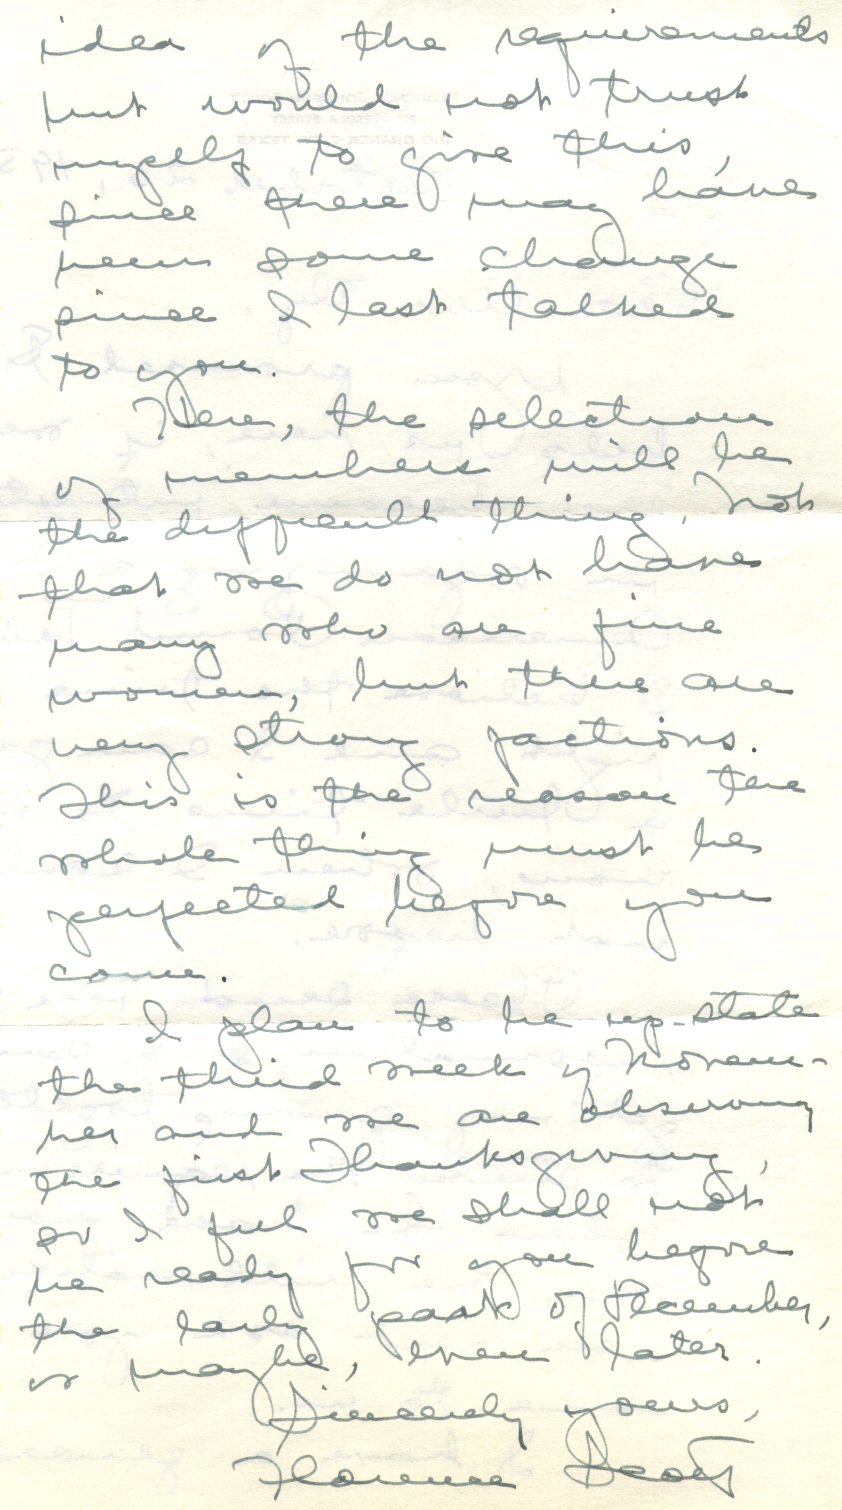 idea of the requirements
but would not trust
myself to give this,
since there may have
been some change
since I last talked
to you.
Here, the selection
of members will be
the difficult thing. Not
that we do not have
many who are fine
women, but there are
very strong factions.
This is the reason the
whole thing must be
perfected before you
come.
I plan to be up-state
the third week of Novem-
ber and we are observing
the first Thanksgiving,
so I feel we shall not
be ready for you before
the early part of December,
or maybe, even later.
Sincerely yours,
Florence Scott